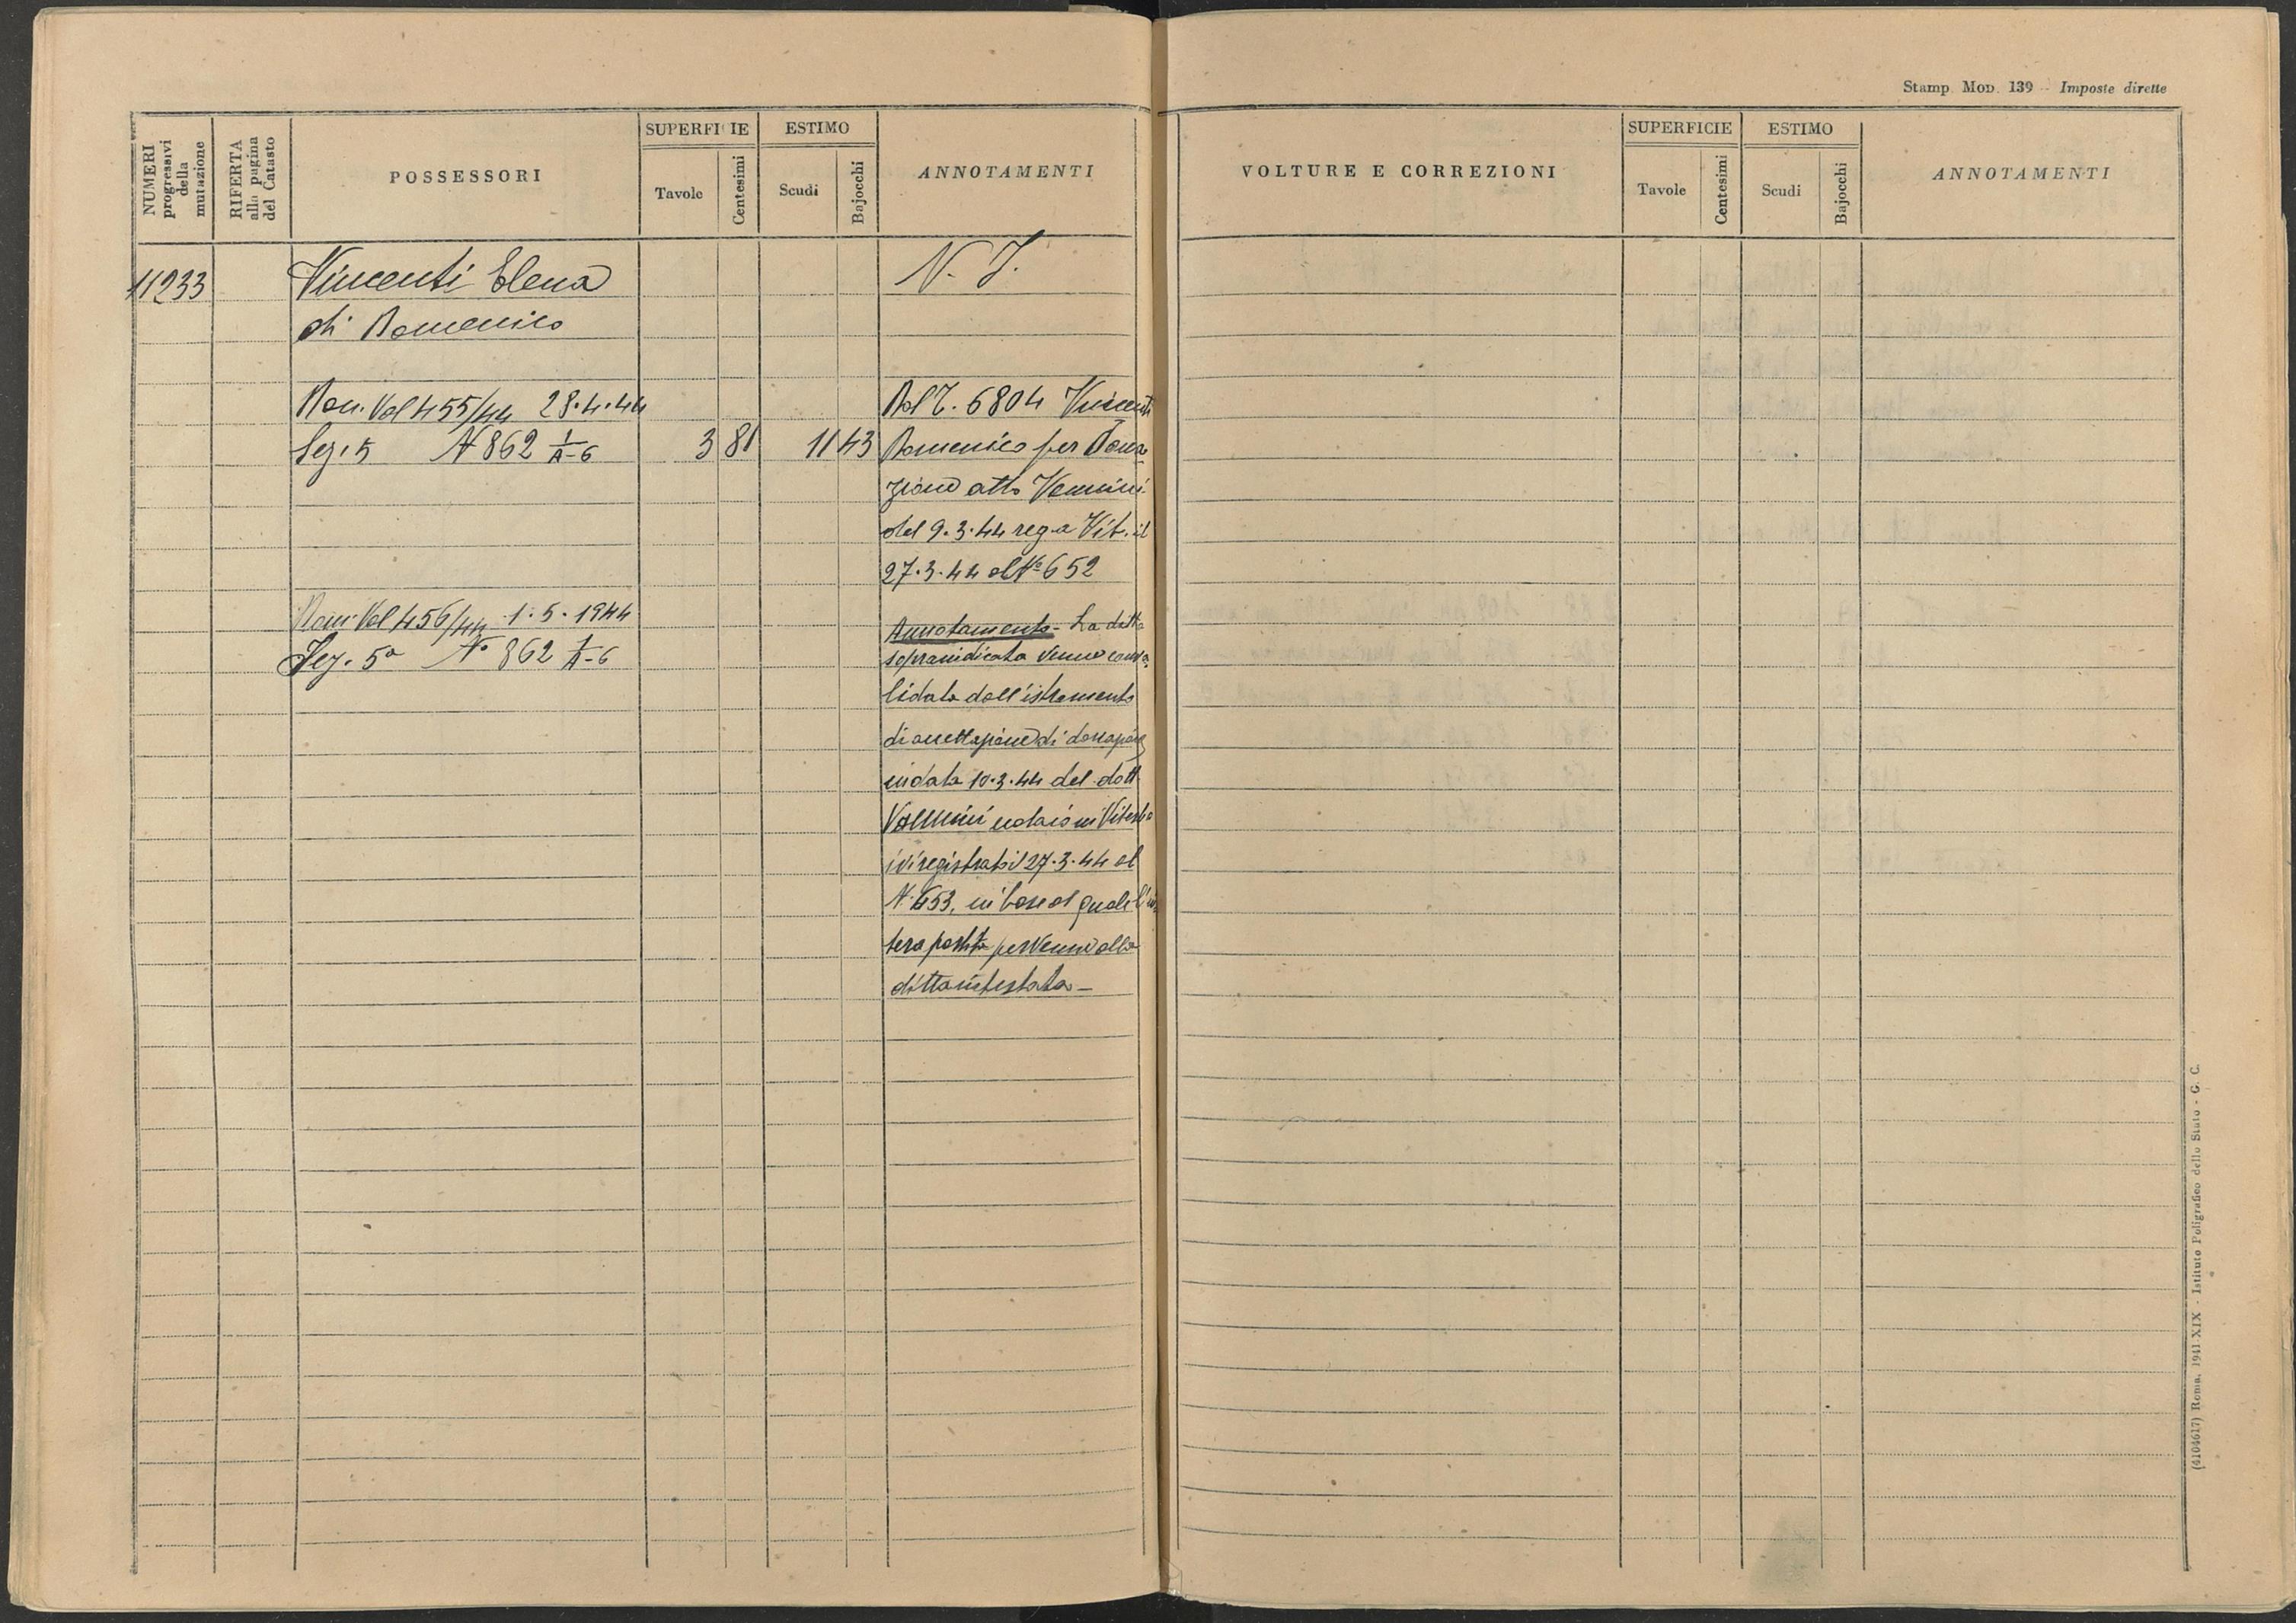 Stamp. Mod. 139 - Imposte dirette
NUMERI progressivi della mutazione
RIFERTA alla pagina del Catasto
POSSESSORI
SUPERFICIE
Tavole
Centesimi
ESTIMO
Scudi
Bajocchi
ANNOTAMENTI
VOLTURE E CORREZIONI
SUPERFICIE
Tavole
Centesimi
ESTIMO
Scudi
Bajocchi
ANNOTAMENTI
11233 Vincenti Elena N.
di Domenico
Vol 455/44 28.4.44 6804 Vincenti
Sez. 5 N 862 1/A-6 3 81 11 43 Domenico per Dona
zione atto Vannini
del 9.3.44 reg. a Vit. il
27.3.44 al N° 652
Vol 456/44 1.5.1944
Sez. 5a N° 862 1/A-6
Annotamento - La ditta
sopraindicata venne conva
lidata dall'istrumento
di accettazione di donazione
in data 10.3.44 del dott
Vannini notaio in Viterbo
ivi registrato il 27.3.44 al
N. 653, in base al quale l'in
tera partita pervenne alla
ditta intestata -
(4104617) Roma, 1941-XIX - Istituto Poligrafico dello Stato - G. C.